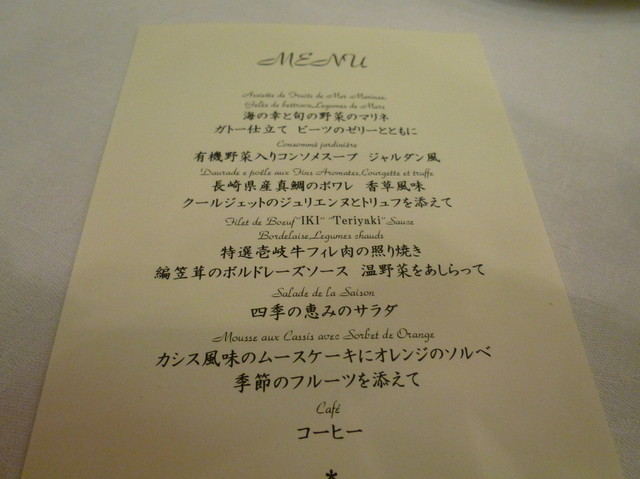 MENU
Assiette de Fruits de Mer Marines,
Gelée de bettrave,Legumes de Mars
海の幸と旬の野菜のマリネ
ガトー仕立て ビーツのゼリーとともに
Consommé jardinière
有機野菜入りコンソメスープ ジャルダン風
Daurade e poêle aux Fins Aromates,Courgette et truffe
長崎県産真鯛のポワレ 香草風味
クールジェットのジュリエンヌとトリュフを添えて
Filet de Boeuf "IKI" "Teriyaki" Sauce
Bordelaise,Legumes chauds
特選壱岐牛フィレ肉の照り焼き
編笠茸のボルドレーズソース 温野菜をあしらって
Salade de la Saison
四季の恵みのサラダ
Mousse aux Cassis avec Sorbet de Orange
カシス風味のムースケーキにオレンジのソルベ
季節のフルーツを添えて
Café
コーヒー
*